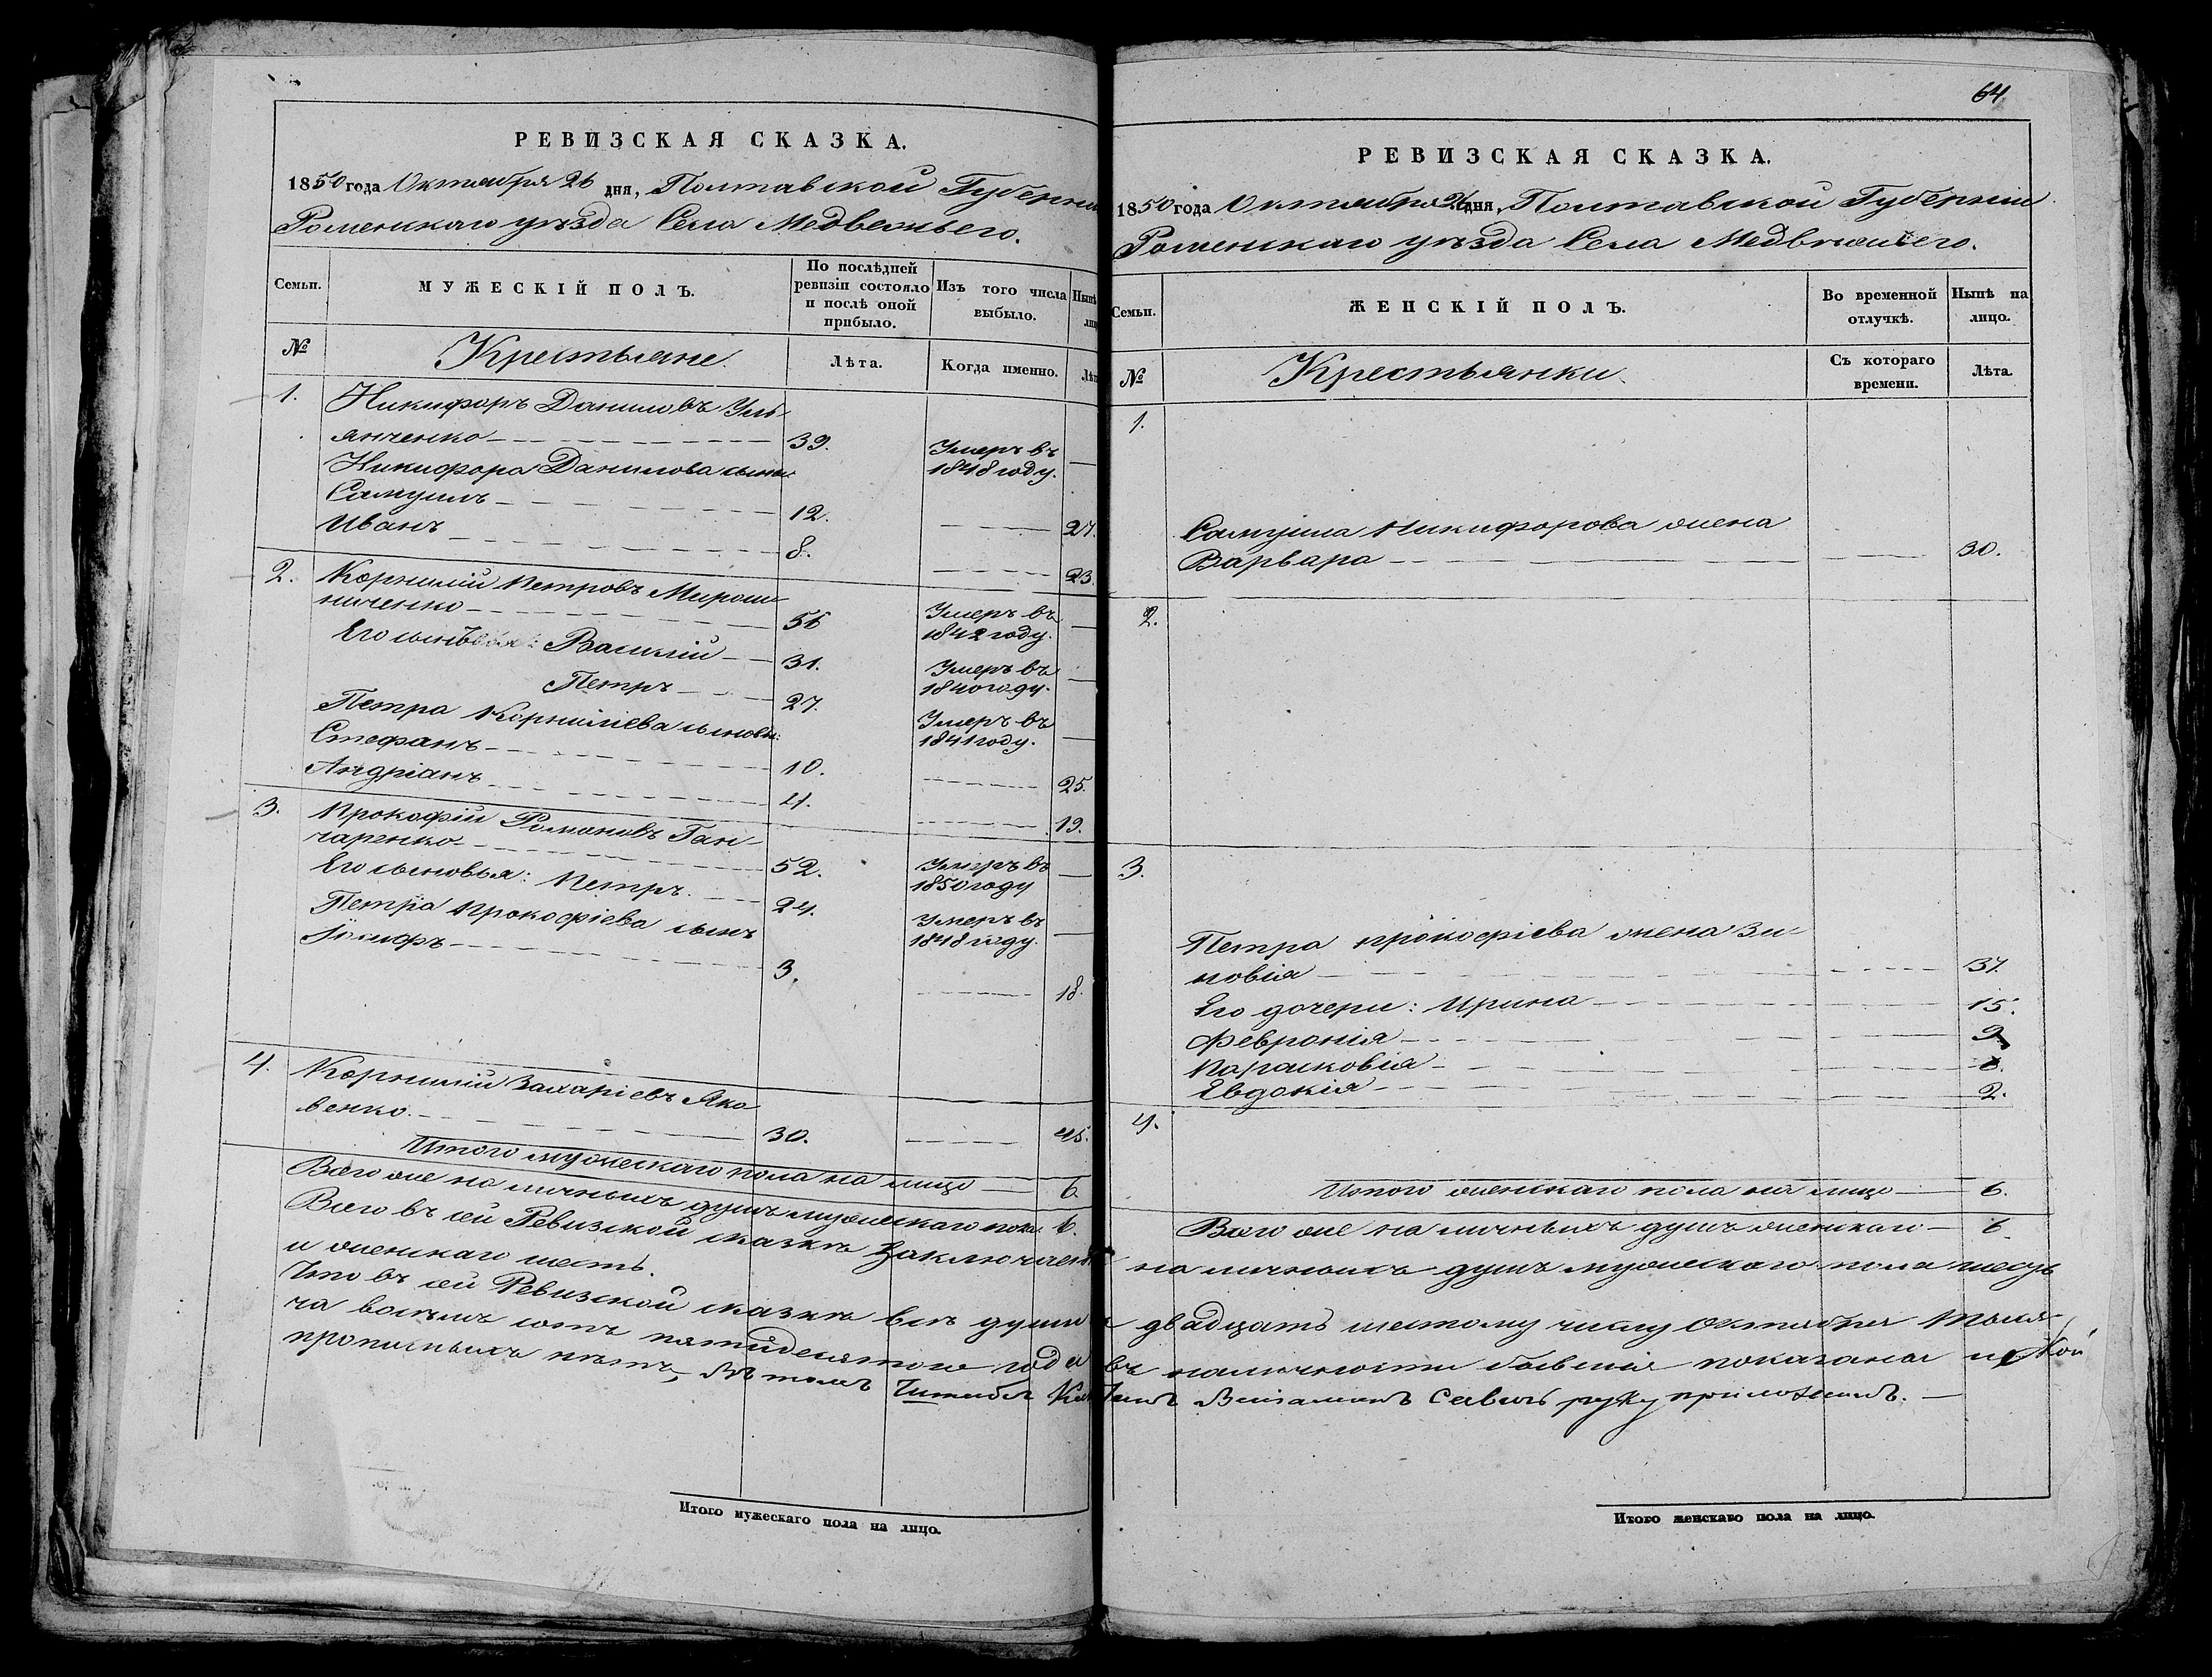 РЕВИЗСКАЯ СКАЗКА.
1850 года Октября 26 дня, Полтавской Губерніи
Роменскаго уѣзда Села Медвежьего.
Семьи.
МУЖЕСКІЙ ПОЛЪ.
По послѣдней ревизіи состояло и послѣ оной прибыло.
Изъ того числа выбыло.
Нынѣ
№
Крестьяне.
Лѣта.
Когда именно.
Лѣт
1.
Никифоръ Даниловъ Уль-
янченко 39. Умеръ въ 1848 году.
Никифора Данилова сыны
Самуилъ 12. 27.
Иванъ 8. 23.
2.
Корнилій Петровъ Мирош-
ниченко 56 Умеръ въ 1842 году.
Его сыновья: Василій 31. Умеръ въ 1840 году.
Петръ 27. Умеръ въ 1841 году.
Петра Корниліева сыновья:
Стефанъ 10. 25.
Андріанъ 4. 19.
3.
Прокофій Романовъ Ган-
чаренко 52. Умеръ въ 1850 году
Его сыновья: Петръ. 24. Умеръ въ 1848 году.
Петра Прокофіева сынъ
Іосифъ 3. 18.
4.
Корнилій Захаріевъ Яко-
венко. 30. 45.
Итого мужескаго пола на лицо 6
Всего же наличныхъ душъ мужескаго пола 6.
Всего въ сей Ревизской сказкѣ заключает
и женскаго шесть.
Что въ сей Ревизской сказкѣ всѣ души
ча восемь сотъ пятидесятого года
прописныхъ нѣтъ, въ томъ
Итого мужескаго пола на лицо.
64
РЕВИЗСКАЯ СКАЗКА.
1850 года Октября 26 дня, Полтавской Губерніи
Роменскаго уѣзда Села Медвежьего.
Семьи.
ЖЕНСКІЙ ПОЛЪ.
Во временной отлучкѣ.
Нынѣ на лицо.
№
Крестьянки.
Съ котораго времени.
Лѣта.
1.
Самуила Никифорова жена
Варвара 30.
2.
3.
Петра Прокофіева жена Зи-
новія 37.
Его дочери: Ирина 15.
Февронія 9
Парасковія 8.
Евдокія 2.
4.
Итого женскаго пола на лицо 6.
Всего же наличныхъ душъ женскаго 6
наличныхъ душъ мужескаго пола шесть
двадцать шестому числу Октября тыся-
въ наличности бывшія показаны и
руку приложилъ.
Итого женскаго пола на лицо.